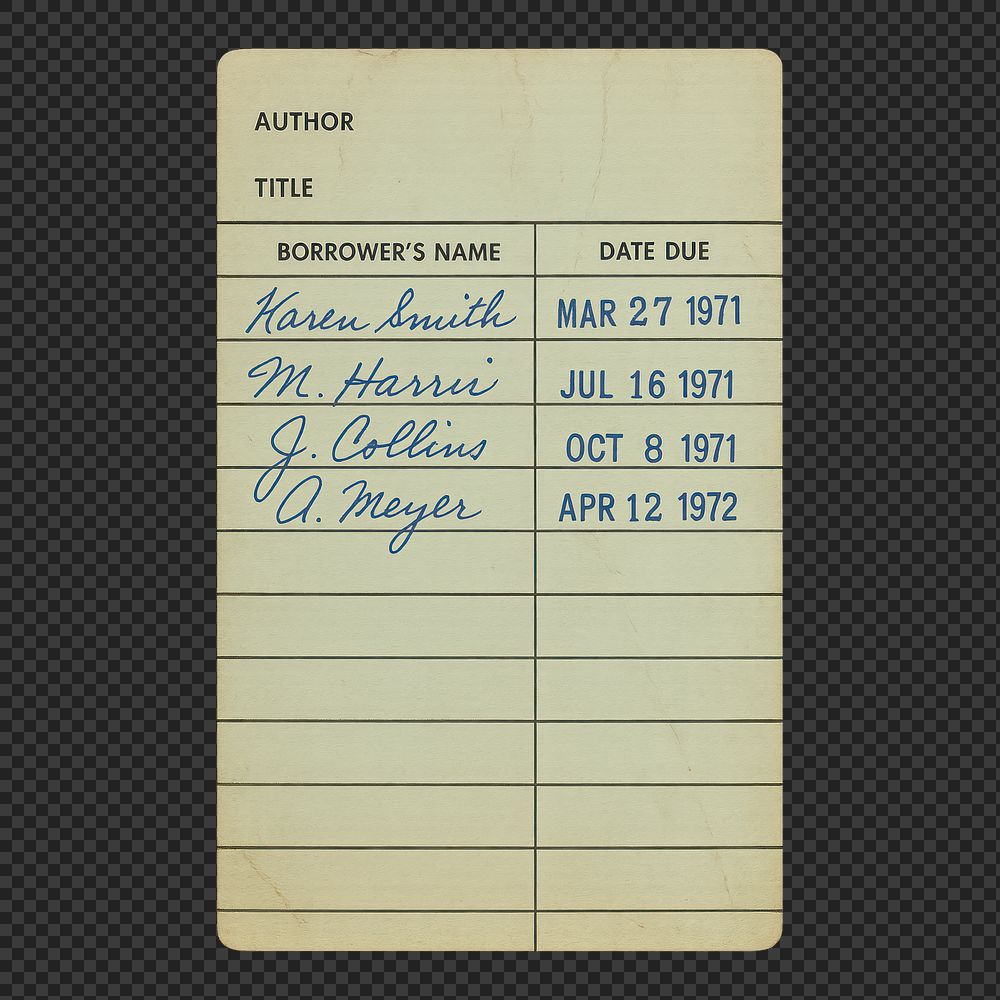 AUTHOR
TITLE
BORROWER'S NAME DATE DUE
Karen Smith MAR 27 1971
M. Harris JUL 16 1971
J. Collins OCT 8 1971
A. Meyer APR 12 1972